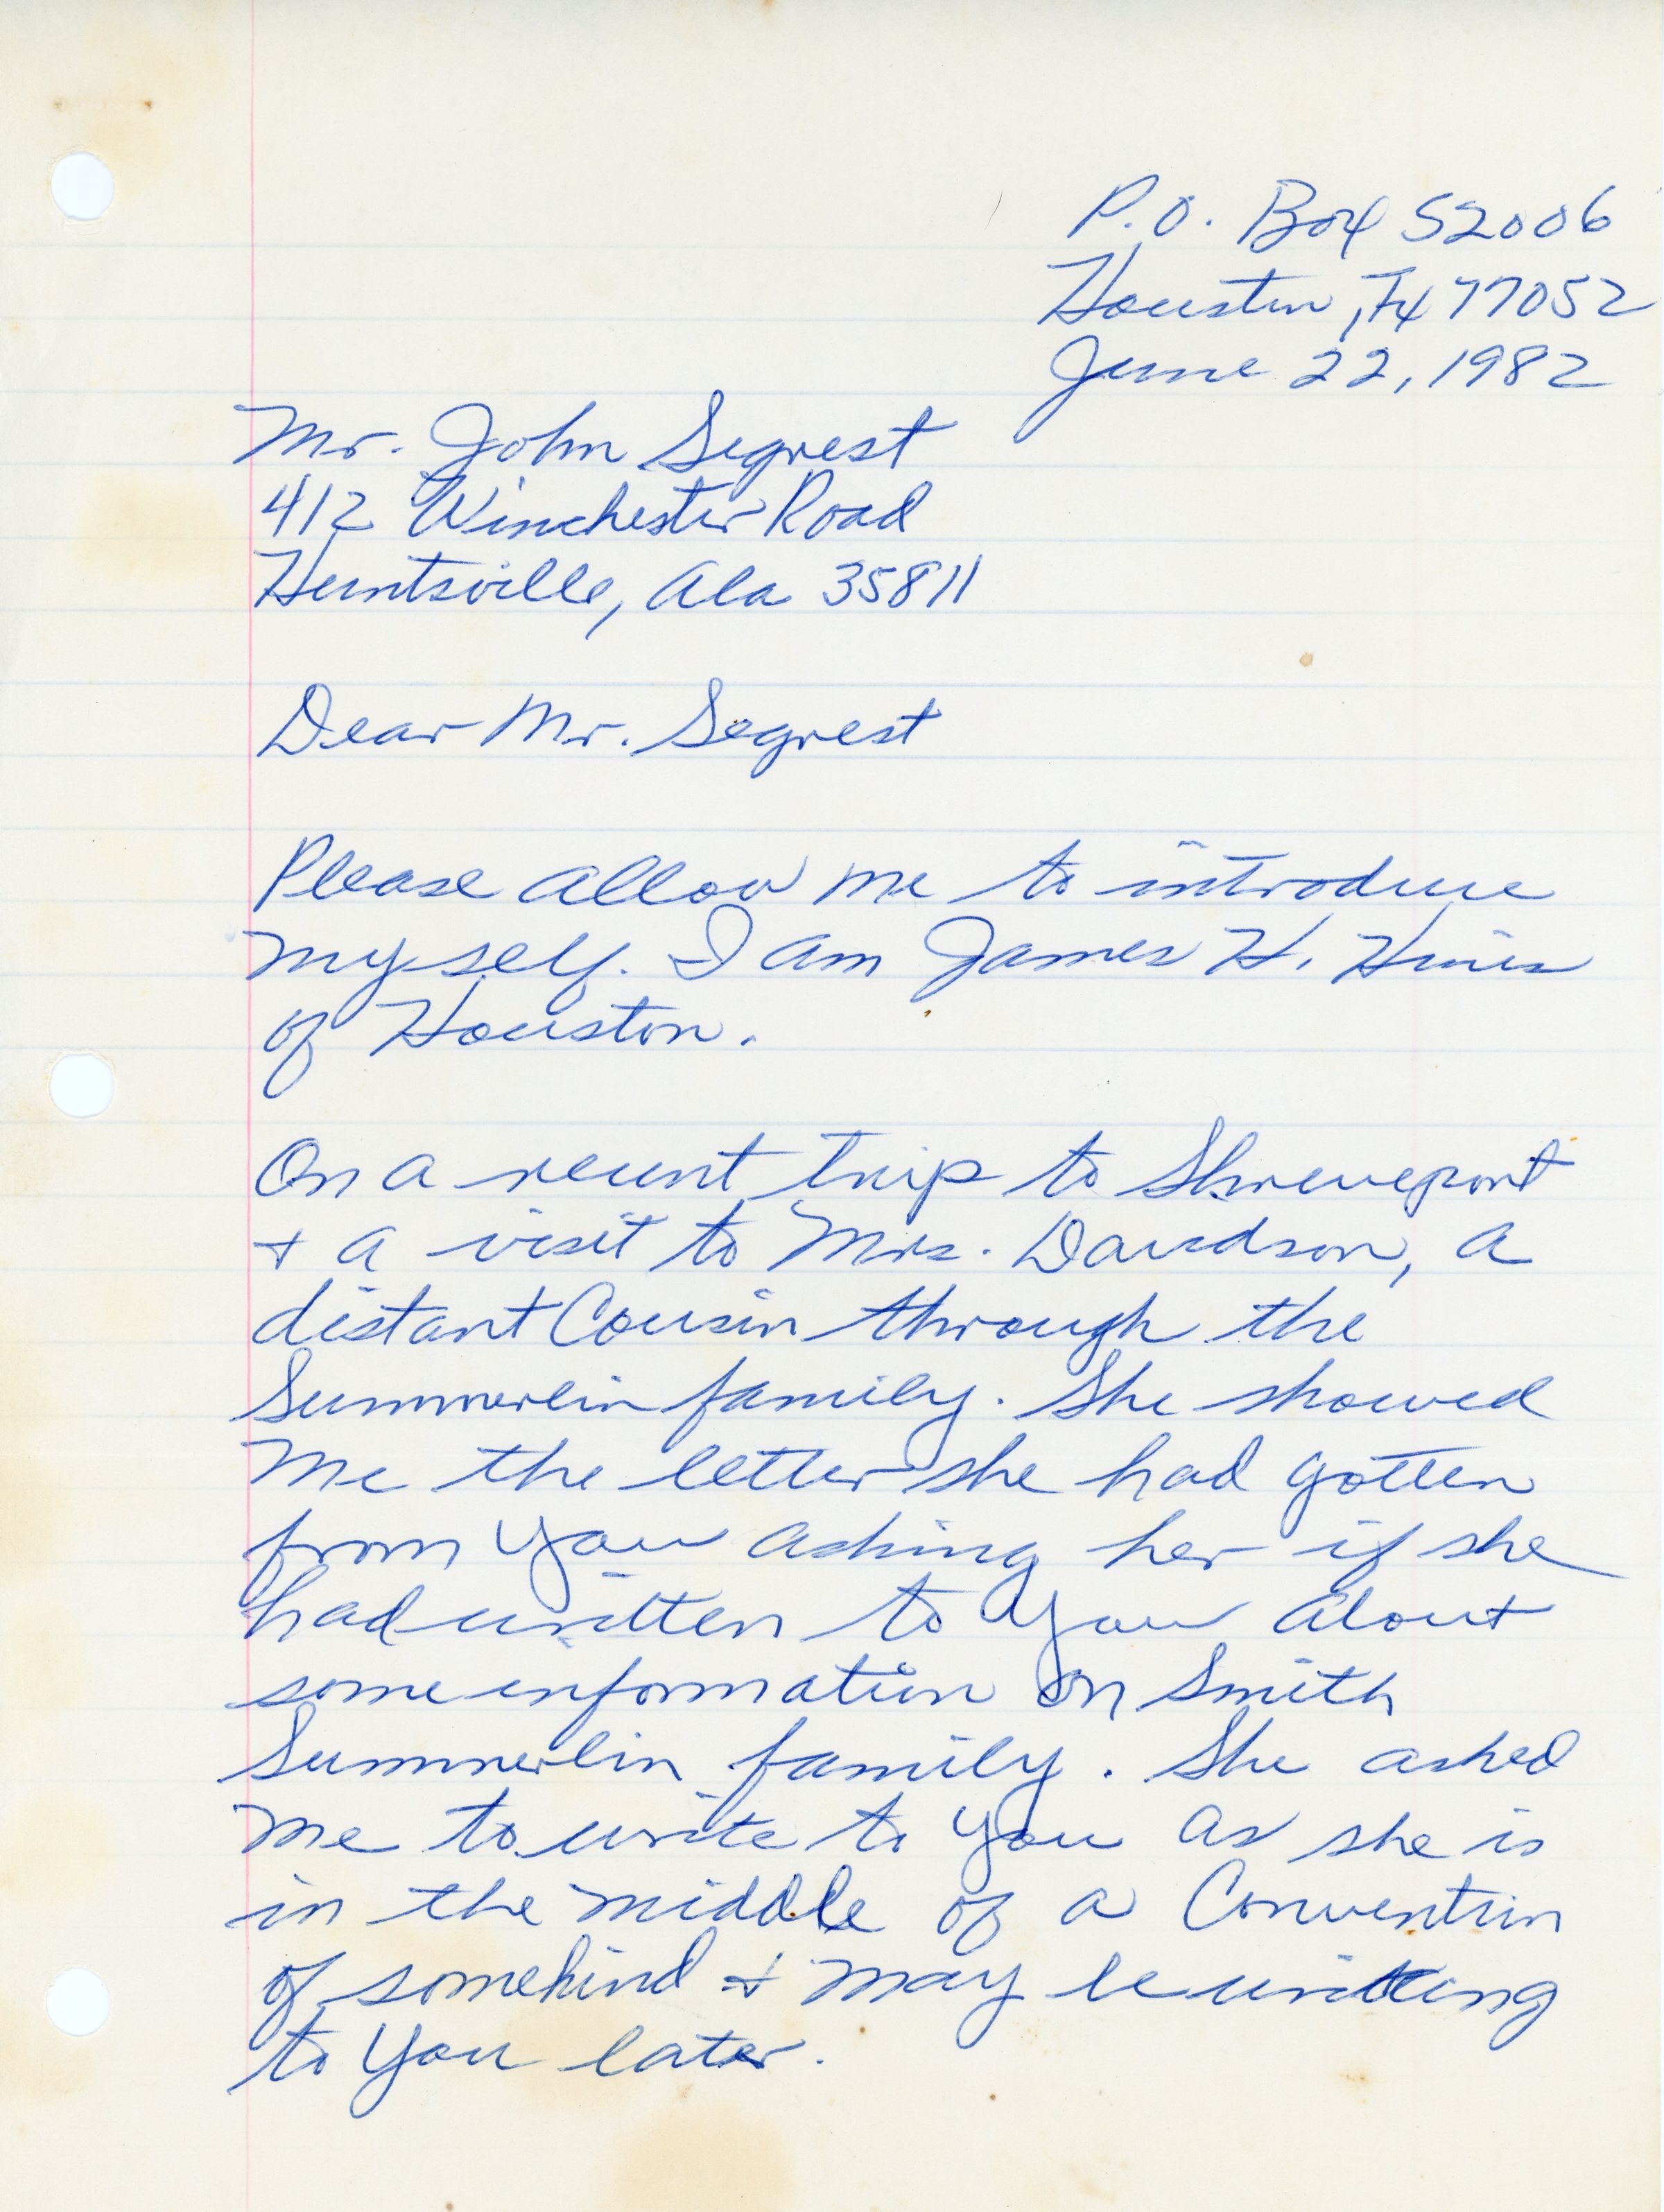 P.O. Box 52006
Houston, Tx 77052
June 22, 1982
Mr. John Segrest
412 Winchester Road
Huntsville, Ala 35811
Dear Mr. Segrest
Please allow me to introduce
myself. I am James H. Hines
of Houston.
On a recent trip to Shreveport
& a visit to Mrs. Davidson, a
distant Cousin through the
Summerlin family. She showed
me the letter she had gotten
from you asking her if she
had written to you about
some information on Smith
Summerlin family. She asked
me to write to you as she is
in the middle of a Convention
of somekind & may be writing
to you later.